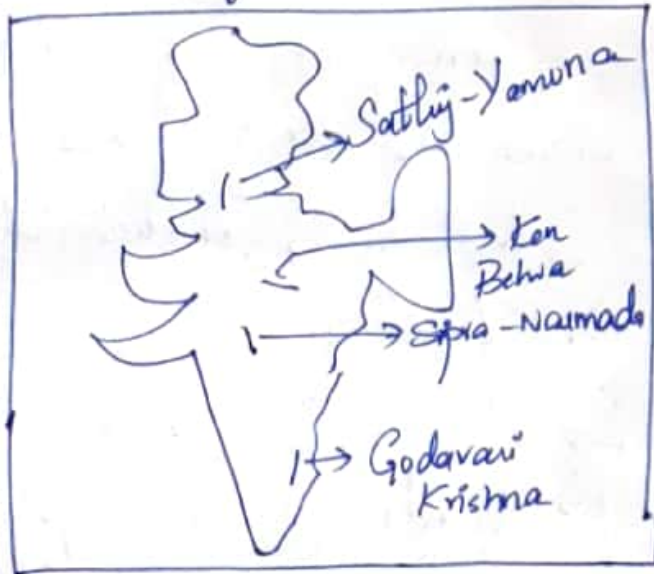 Satluj-Yamuna
Ken
Betwa
Sipra-Narmada
Godavari
Krishna